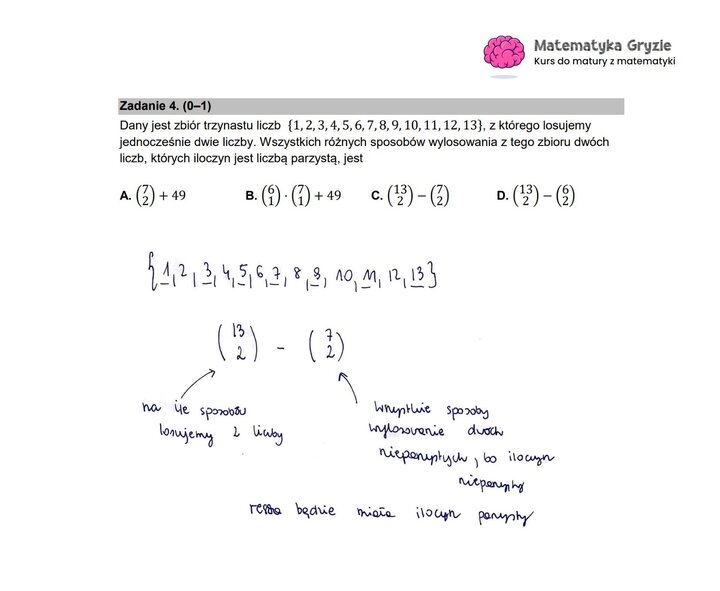 Matematyka Gryzie
Kurs do matury z matematyki
Zadanie 4. (0–1)
Dany jest zbiór trzynastu liczb {1, 2, 3, 4, 5, 6, 7, 8, 9, 10, 11, 12, 13}, z którego losujemy
jednocześnie dwie liczby. Wszystkich różnych sposobów wylosowania z tego zbioru dwóch
liczb, których iloczyn jest liczbą parzystą, jest
A. (7 2) + 49 B. (6 1) · (7 1) + 49 C. (13 2) − (7 2) D. (13 2) − (6 2)
{1, 2, 3, 4, 5, 6, 7, 8, 9, 10, 11, 12, 13}
(13 2) - (7 2)
na ile sposobów
losujemy 2 liczby
wszystkie sposoby
wylosowanie dwóch
nieparzystych, bo iloczyn
nieparzysty
reszta będzie miała iloczyn parzysty